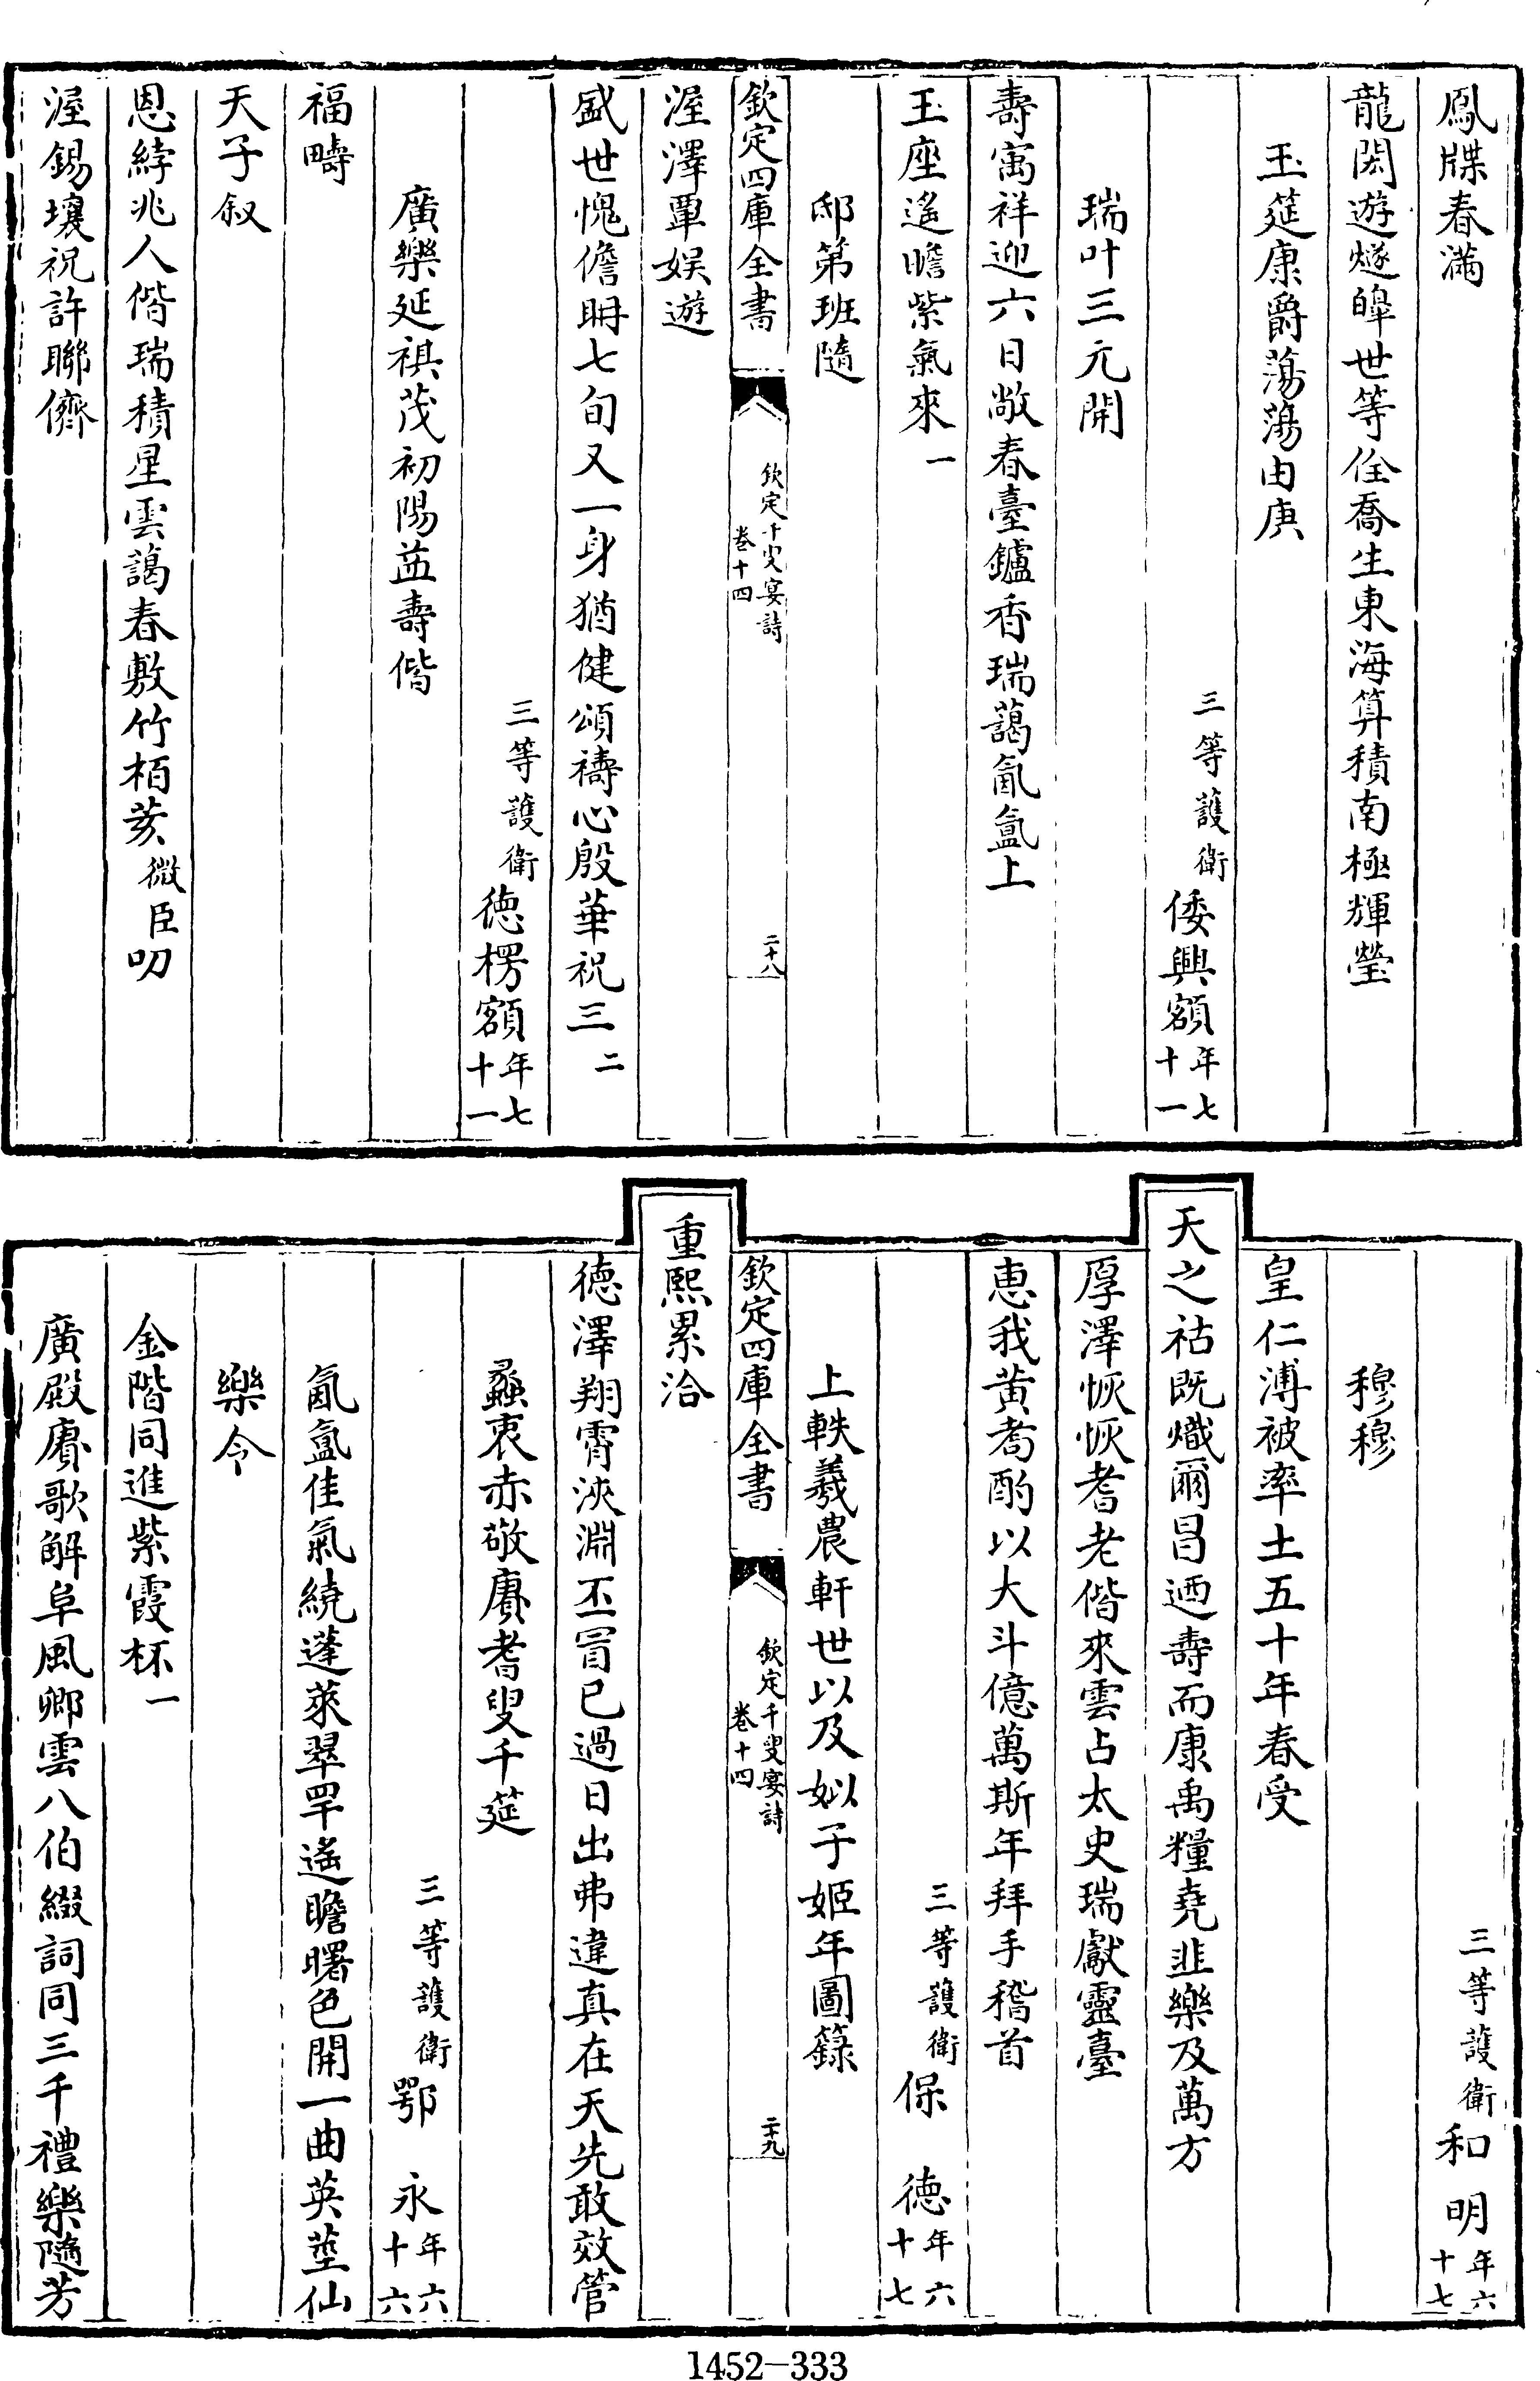 鳳牒春滿
龍閎遊燧皥世等佺喬生東海算積南極輝瑩
玉筵康爵蕩蕩由庚
三等護衛倭興額年七十一
瑞叶三元開
壽㝢祥迎六日敞春臺鑪香瑞藹氤氳上
玉座遙瞻紫氣來一
邸第班隨
欽定四庫全書
欽定千叟宴詩
卷十四
二十八
渥澤覃娛遊
盛世愧儋耼七旬又一身猶健頌禱心殷華祝三二
三等護衛德楞額年七十一
廣樂延祺茂初陽益壽偕
福疇
天子叙
恩綍兆人偕瑞積星雲藹春敷竹栢荄微臣叨
渥錫壤祝許聯儕
三等護衛和明年六十七
穆穆
皇仁溥被率土五十年春受
天之祜既熾爾昌迺壽而康禹糧堯韭樂及萬方
厚澤恢恢耆老偕來雲占太史瑞獻靈臺
恵我黃耇酌以大斗億萬斯年拜手稽首
三等護衛保德年六十七
上軼羲農軒世以及姒子姬年圖籙
欽定四庫全書
欽定千叟宴詩
卷十四
二十九
重熙累洽
德澤翔霄浹淵丕冒已過日出弗違真在天先敢效管
蠡衷赤敬賡耆叟千筵
三等護衛鄂永年六十六
氤氳佳氣繞蓬萊翠罕遙瞻曙色開一曲英莖仙
樂令
金階同進紫霞杯一
廣殿賡歌解阜風卿雲八伯綴詞同三千禮樂隨芳
1452-333